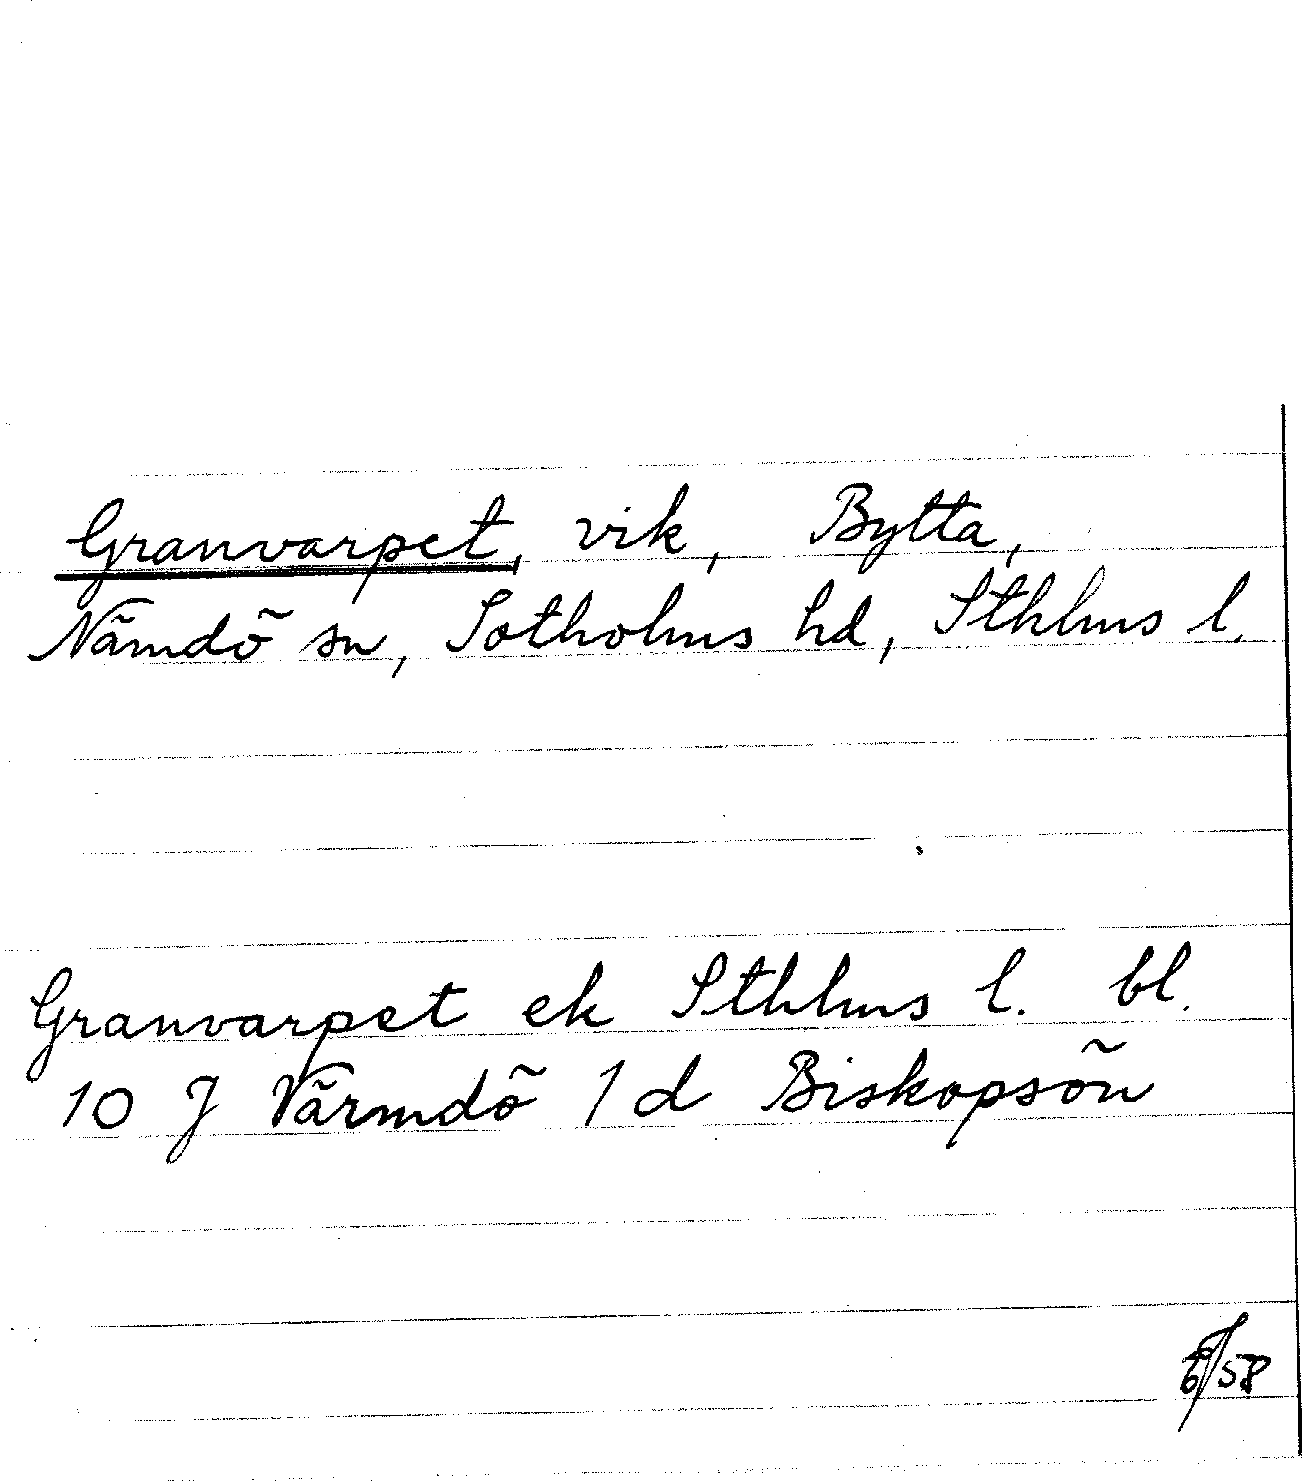 Granvarpet, vik, Bytta,
Nämdö sn, Sotholms hd, Sthlms l.
Granvarpet ek Sthlms l. bl.
10 J Värmdö 1 d Biskopsön
58